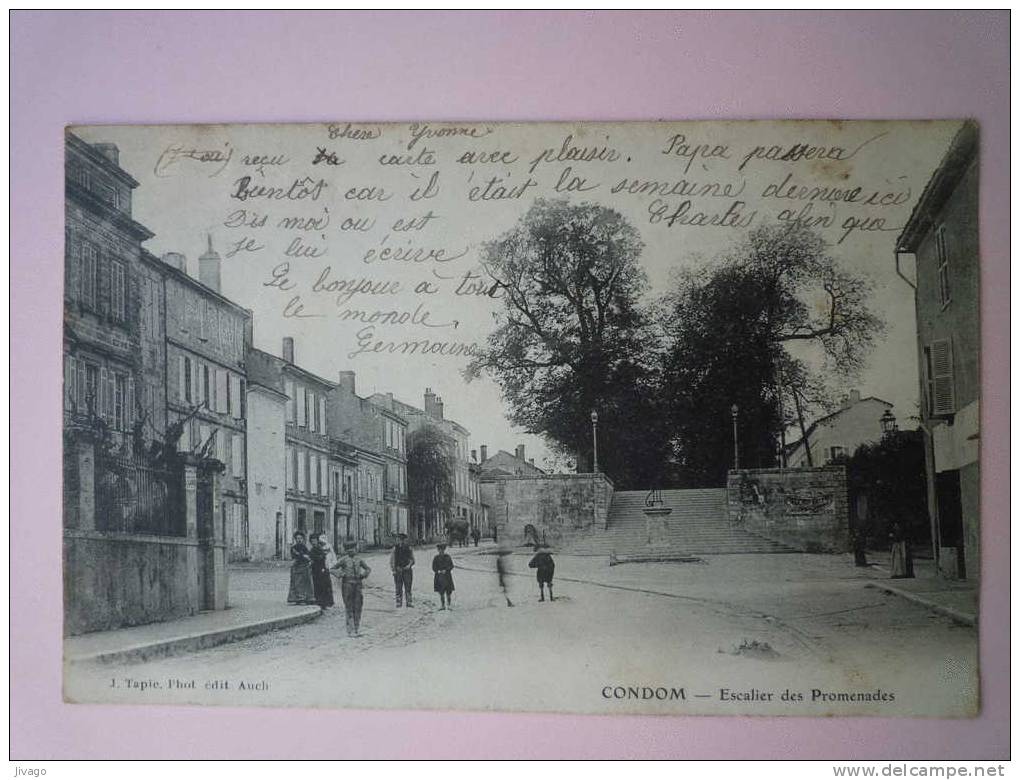 Chere Yvonne
reçu ta carte avec plaisir. Papa passera
Bientôt car il était la semaine derniere ici
Dis moi ou est Charles afin que
je lui écrive
Le bonjour à tout
le monde.
Germaine
J. Tapie, Phot. édit. Auch
CONDOM — Escalier des Promenades
jivago
www.delcampe.net